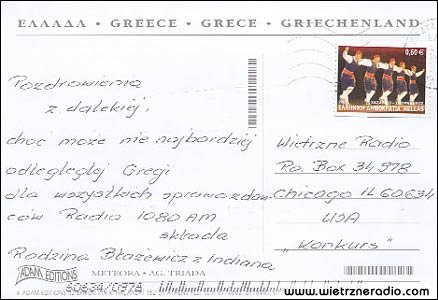 ΕΛΛΑΔΑ • GREECE • GRECE • GRIECHENLAND
0,60 €
ΕΛΛΗΝΙΚΗ ΔΗΜΟΚΡΑΤΙΑ HELLAS
Pozdrowienia
z dalekiej,
choć może nie najbardziej
odległej Gregi
dla wszystkich sprawozdaw
ców Radia 1080 AM
składa
Rodzina Błażewicz z Indiana
Wietrzne Radio
P.o. Box 34 578
Chicago IL 60634
USA
"Konkurs"
60634/0878
ADAM EDITIONS
METEORA - AG. TRIADA
© ADAM EDITIONS
www.wietrzneradio.com